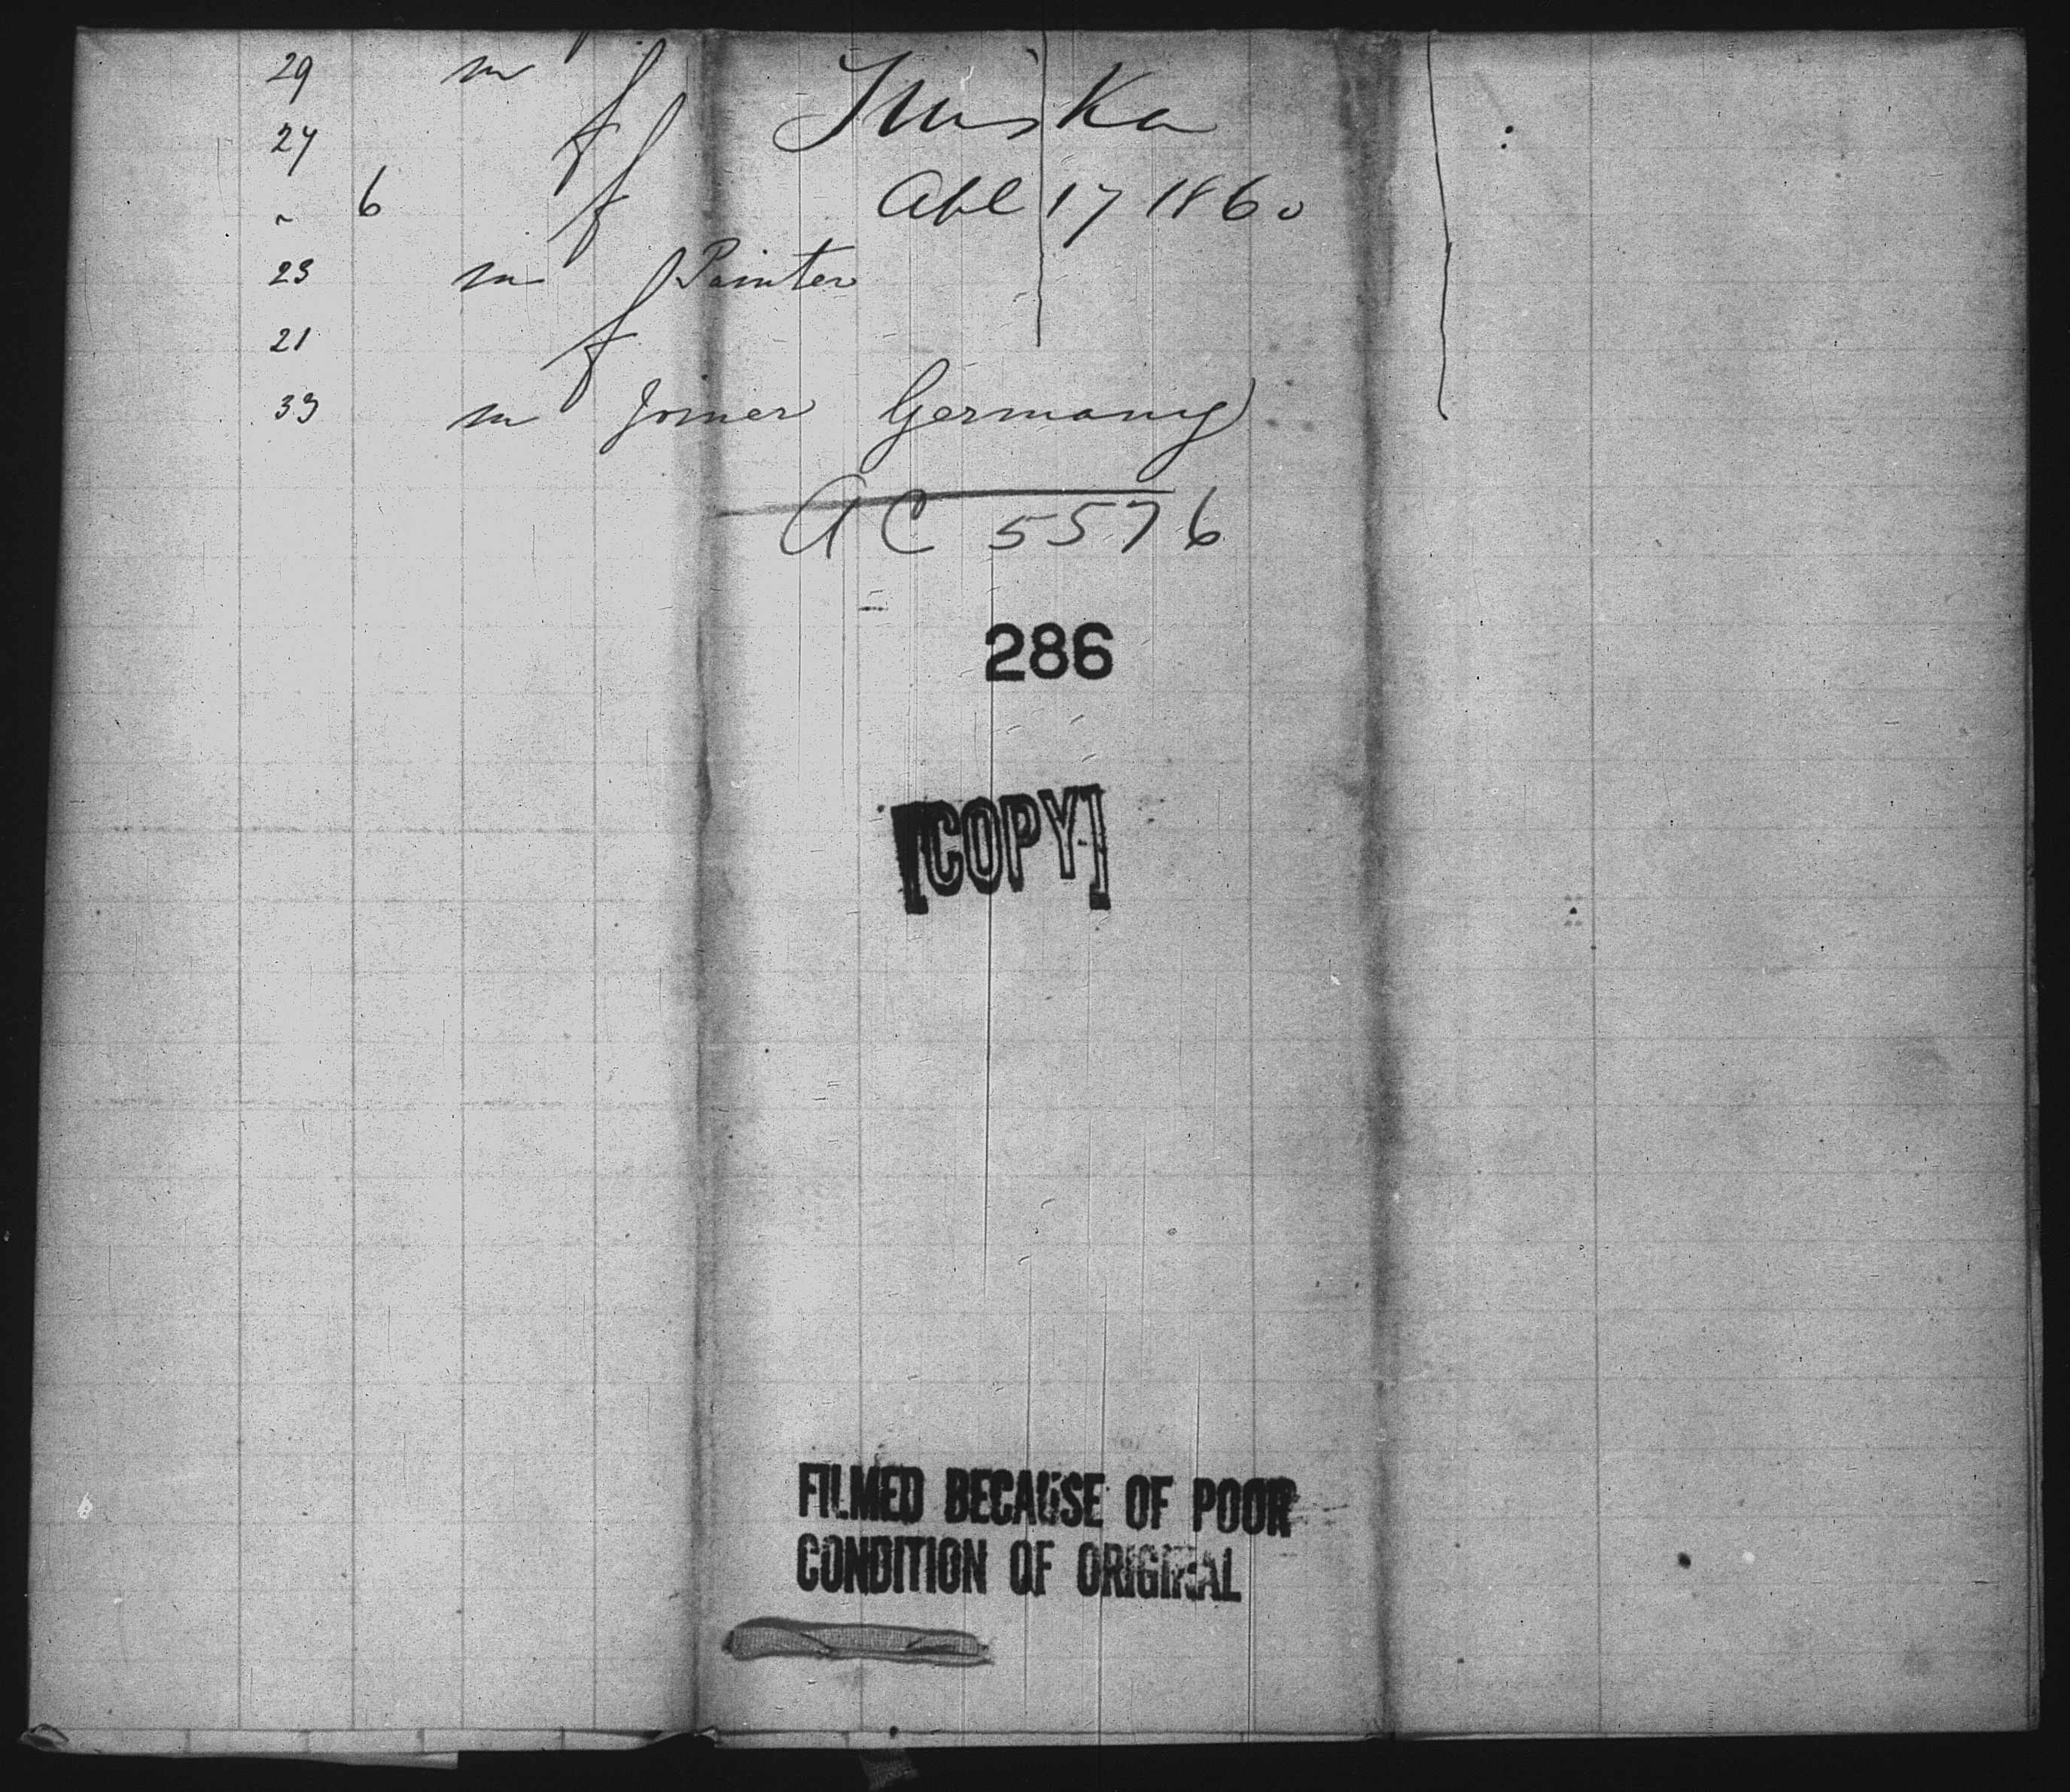 29 m
27 f
6 f
23 m Painter
21 f
33 m Joiner Germany
Apl 17 1860
AC 5576
286
[COPY]
FILMED BECAUSE OF POOR
CONDITION OF ORIGINAL